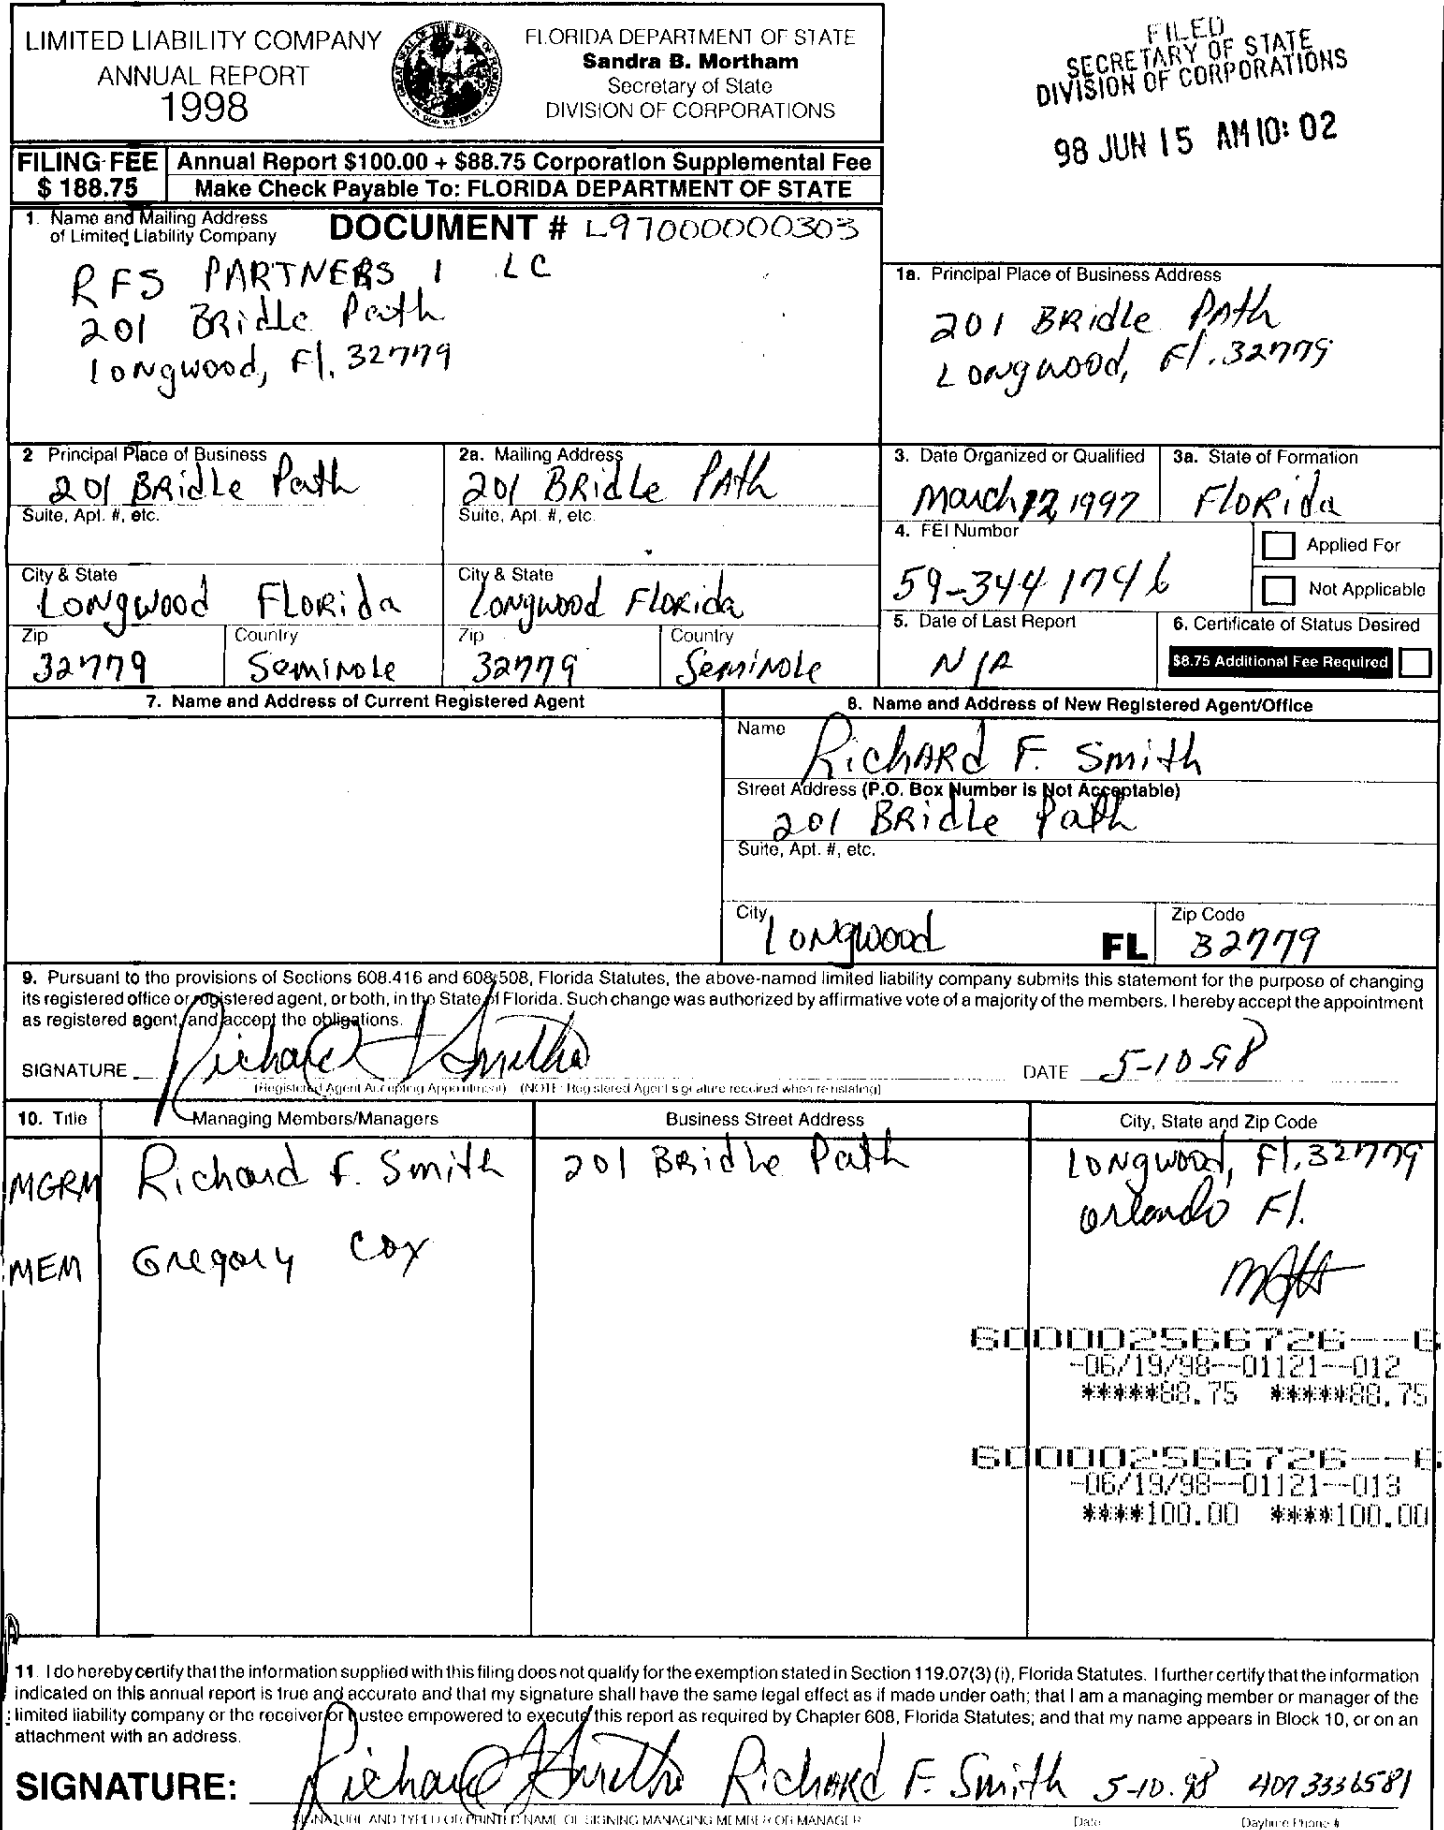 LIMITED LIABILITY COMPANY
ANNUAL REPORT
1998
FLORIDA DEPARTMENT OF STATE
Sandra B. Mortham
Secretary of State
DIVISION OF CORPORATIONS
FILED
SECRETARY OF STATE
DIVISION OF CORPORATIONS
98 JUN 15 AM 10: 02
FILING FEE
$ 188.75
Annual Report $100.00 + $88.75 Corporation Supplemental Fee
Make Check Payable To: FLORIDA DEPARTMENT OF STATE
1. Name and Mailing Address
of Limited Liability Company
DOCUMENT # L97000000303
RFS PARTNERS 1 LC
201 Bridle Path
Longwood, Fl. 32779
1a. Principal Place of Business Address
201 BRidle PAth
Longwood, Fl. 32779
2 Principal Place of Business
201 BRidle Path
Suite, Apt. #, etc.
City & State
Longwood Florida
Zip
32779
Country
Seminole
2a. Mailing Address
201 BRidle PAth
Suite, Apt. #, etc.
City & State
Longwood Florida
Zip
32779
Country
Seminole
3. Date Organized or Qualified
March 12, 1997
3a. State of Formation
Florida
4. FEI Number
59-3441746
Applied For
Not Applicable
5. Date of Last Report
N/A
6. Certificate of Status Desired
$8.75 Additional Fee Required
7. Name and Address of Current Registered Agent
8. Name and Address of New Registered Agent/Office
Name
Richard F. Smith
Street Address (P.O. Box Number is Not Acceptable)
201 BRidle Path
Suite, Apt. #, etc.
City
Longwood
FL
Zip Code
32779
9. Pursuant to the provisions of Sections 608.416 and 608.508, Florida Statutes, the above-named limited liability company submits this statement for the purpose of changing
its registered office or registered agent, or both, in the State of Florida. Such change was authorized by affirmative vote of a majority of the members. I hereby accept the appointment
as registered agent, and accept the obligations.
SIGNATURE Richard F Smith
DATE 5-10-98
(Registered Agent Accepting Appointment) (NOTE: Registered Agent signature required when reinstating)
10. Title
Managing Members/Managers
Business Street Address
City, State and Zip Code
MGRM Richard F. Smith 201 BRidle Path Longwood, Fl. 32779
Orlando Fl.
MEM Gregory Cox
600002566726--6
-06/19/98--01121--012
*****88.75 *****88.75
600002566726--6
-06/19/98--01121--013
****100.00 ****100.00
11. I do hereby certify that the information supplied with this filing does not qualify for the exemption stated in Section 119.07(3)(i), Florida Statutes. I further certify that the information
indicated on this annual report is true and accurate and that my signature shall have the same legal effect as if made under oath; that I am a managing member or manager of the
limited liability company or the receiver or trustee empowered to execute this report as required by Chapter 608, Florida Statutes; and that my name appears in Block 10, or on an
attachment with an address.
SIGNATURE: Richard F Smith Richard F. Smith 5-10-98 407 3336581
SIGNATURE AND TYPED OR PRINTED NAME OF SIGNING MANAGING MEMBER OR MANAGER
Date
Daytime Phone #